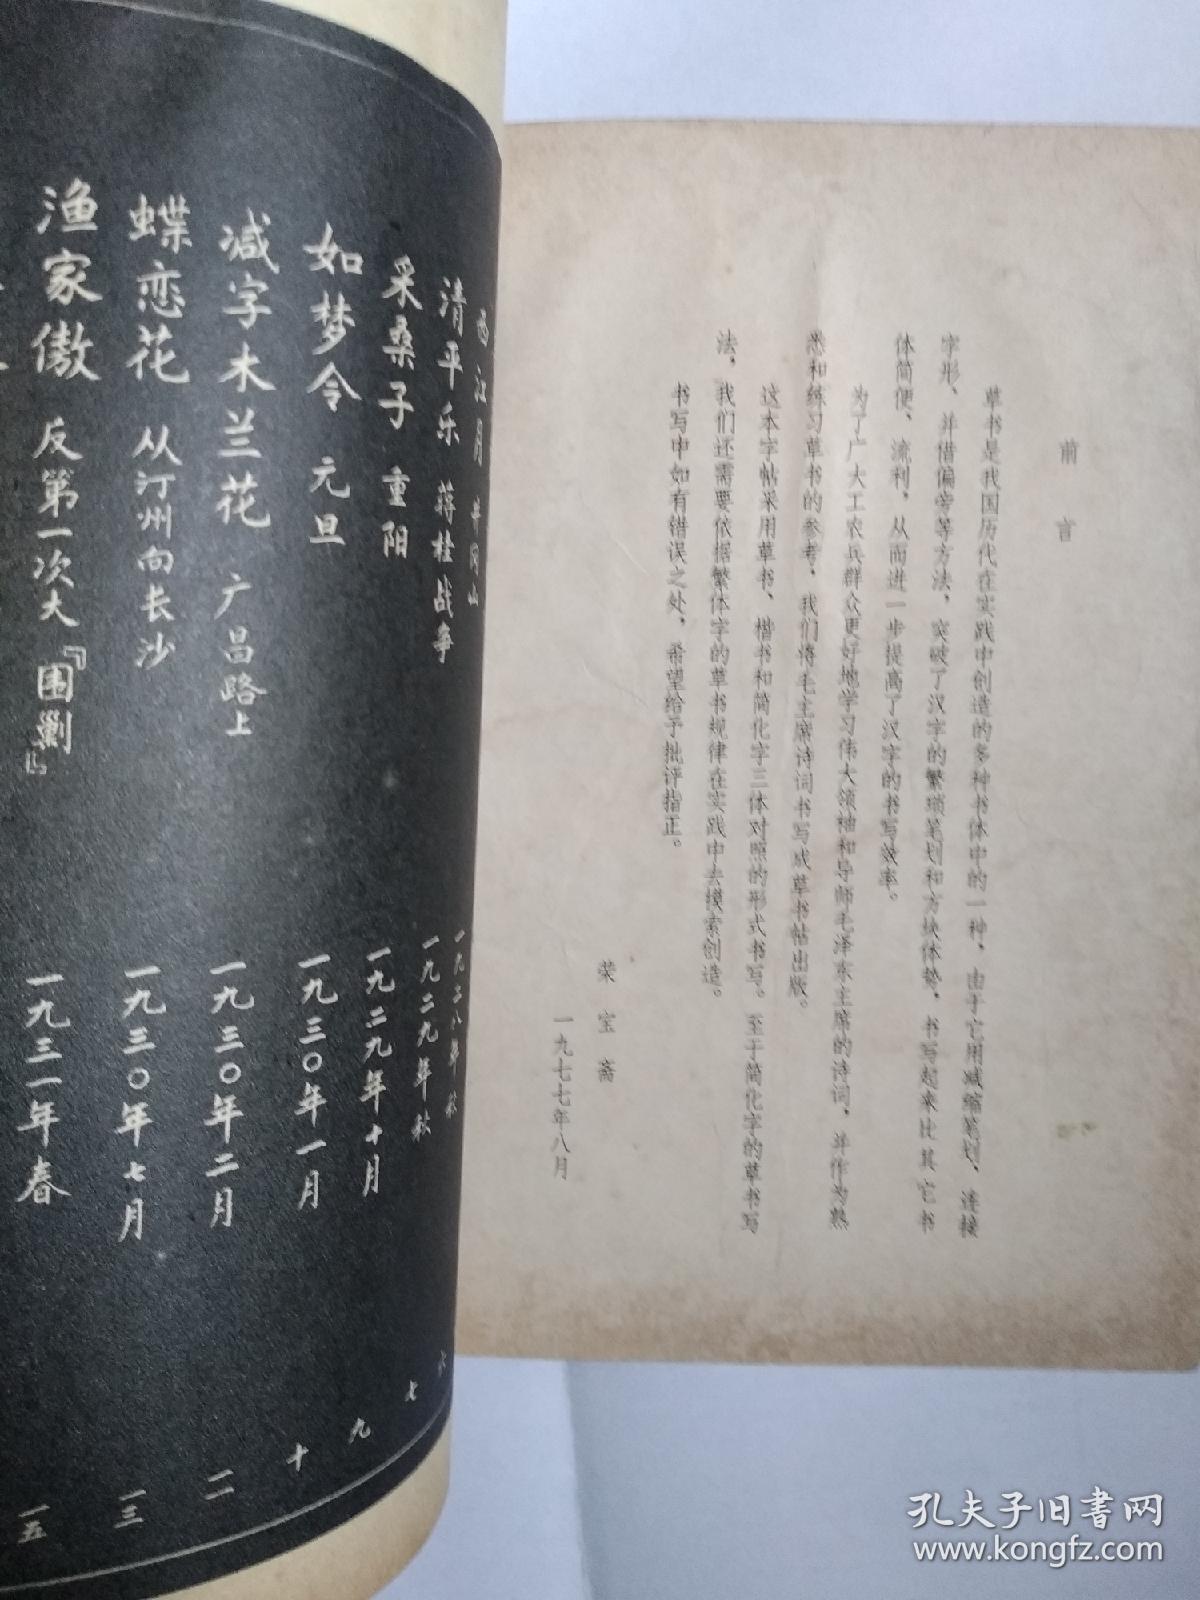 前言
草书是我国历代在实践中创造的多种书体中的一种，由于它用减缩笔划、连接
字形、并借偏旁等方法，突破了汉字的繁琐笔划和方块体势，书写起来比其它书
体简便、流利，从而进一步提高了汉字的书写效率。
为了广大工农兵群众更好地学习伟大领袖和导师毛泽东主席的诗词，并作为熟
悉和练习草书的参考，我们将毛主席诗词书写成草书帖出版。
这本字帖采用草书、楷书和简化字三体对照的形式书写。至于简化字的草书写
法，我们还需要依据繁体字的草书规律在实践中去摸索创造。
书写中如有错误之处，希望给予批评指正。
荣宝斋
一九七七年八月
西江月 井冈山 一九二八年秋 六
清平乐 蒋桂战争 一九二九年秋 七
采桑子 重阳 一九二九年十月 九
如梦令 元旦 一九三〇年一月 十
减字木兰花 广昌路上 一九三〇年二月 一一
蝶恋花 从汀州向长沙 一九三〇年七月 一三
渔家傲 反第一次大『围剿』 一九三一年春 一五
孔夫子旧书网
www.kongfz.com